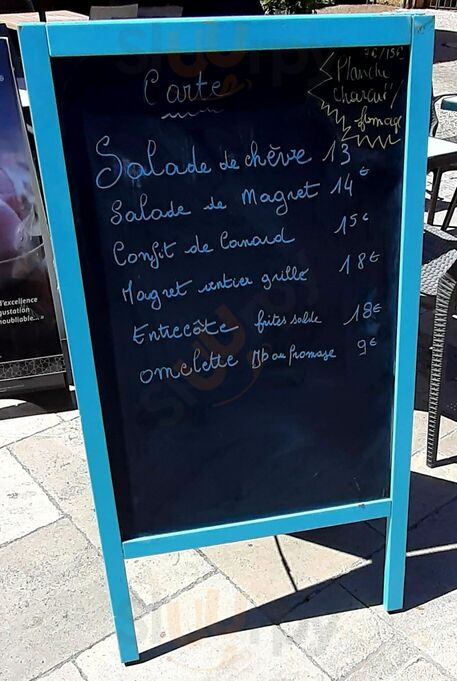 Carte
7€/15€
Planche
charcut'/
fromage
Salade de chèvre 13
Salade de Magret 14€
Confit de Canard 15€
Magret entier grillé 18€
Entrecôte frites salde 18€
omelette Jb ou fromage 9€
d'excellence
gustation
noubliable...»